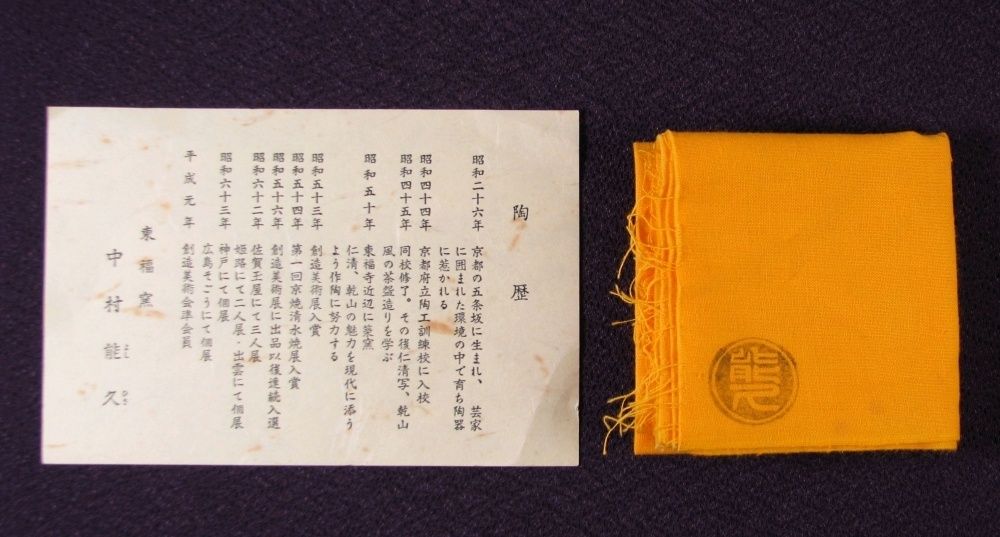 陶歴
昭和二十六年 京都の五条坂に生まれ、芸家
に囲まれた環境の中で育ち陶器
に惹かれる
昭和四十四年 京都府立陶工訓練校に入校
昭和四十五年 同校修了。その後仁清写、乾山
風の茶盌造りを学ぶ
昭和五十年 東福寺近辺に築窯
仁清、乾山の魅力を現代に添う
よう作陶に努力する
昭和五十三年 創造美術展入賞
昭和五十四年 第一回京焼清水焼展入賞
昭和五十六年 創造美術展に出品以後連続入選
昭和六十二年 佐賀玉屋にて三人展
姫路にて二人展・出雲にて個展
昭和六十三年 神戸にて個展
広島そごうにて個展
平成元年 創造美術会準会員
東福窯
中村能久
よし ひさ
能久